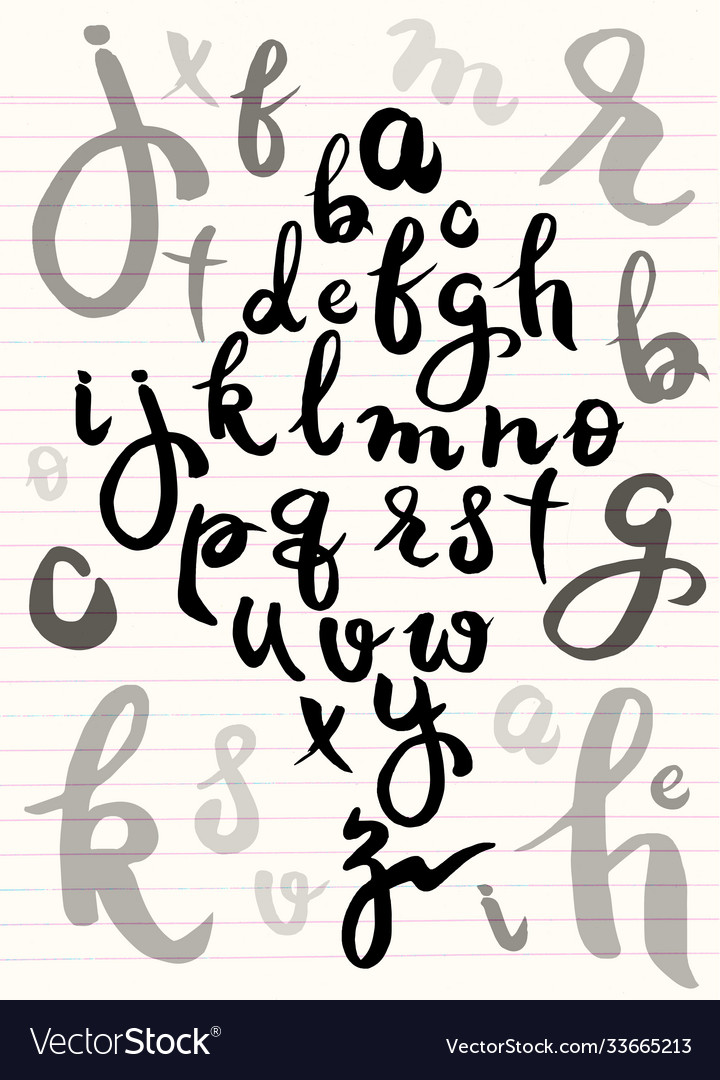 j x f m r
a
b c
t
d e f g h
b
i j k l m n o
o
p q r s t
g
c
u v w
x y
k s a h
e
z
v i
VectorStock®
VectorStock.com/33665213